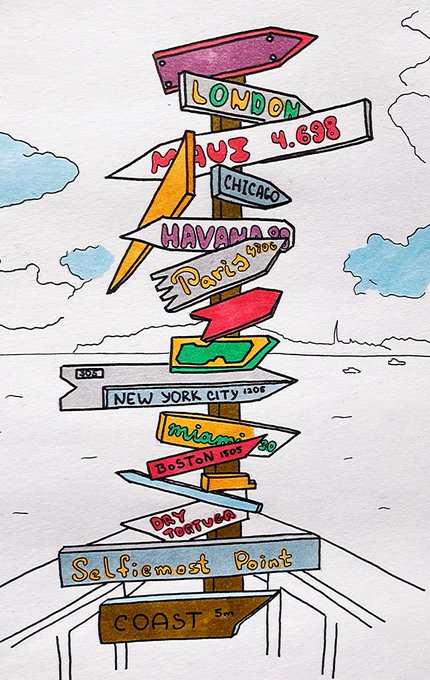 LONDON
MAUI 4.698
CHICAGO
HAVANA 90
Paris 4706
SOS
NEW YORK CITY 1205
miami 90
BOSTON 1505
DRY
TORTUGA
Selfiemost Point
COAST 5m